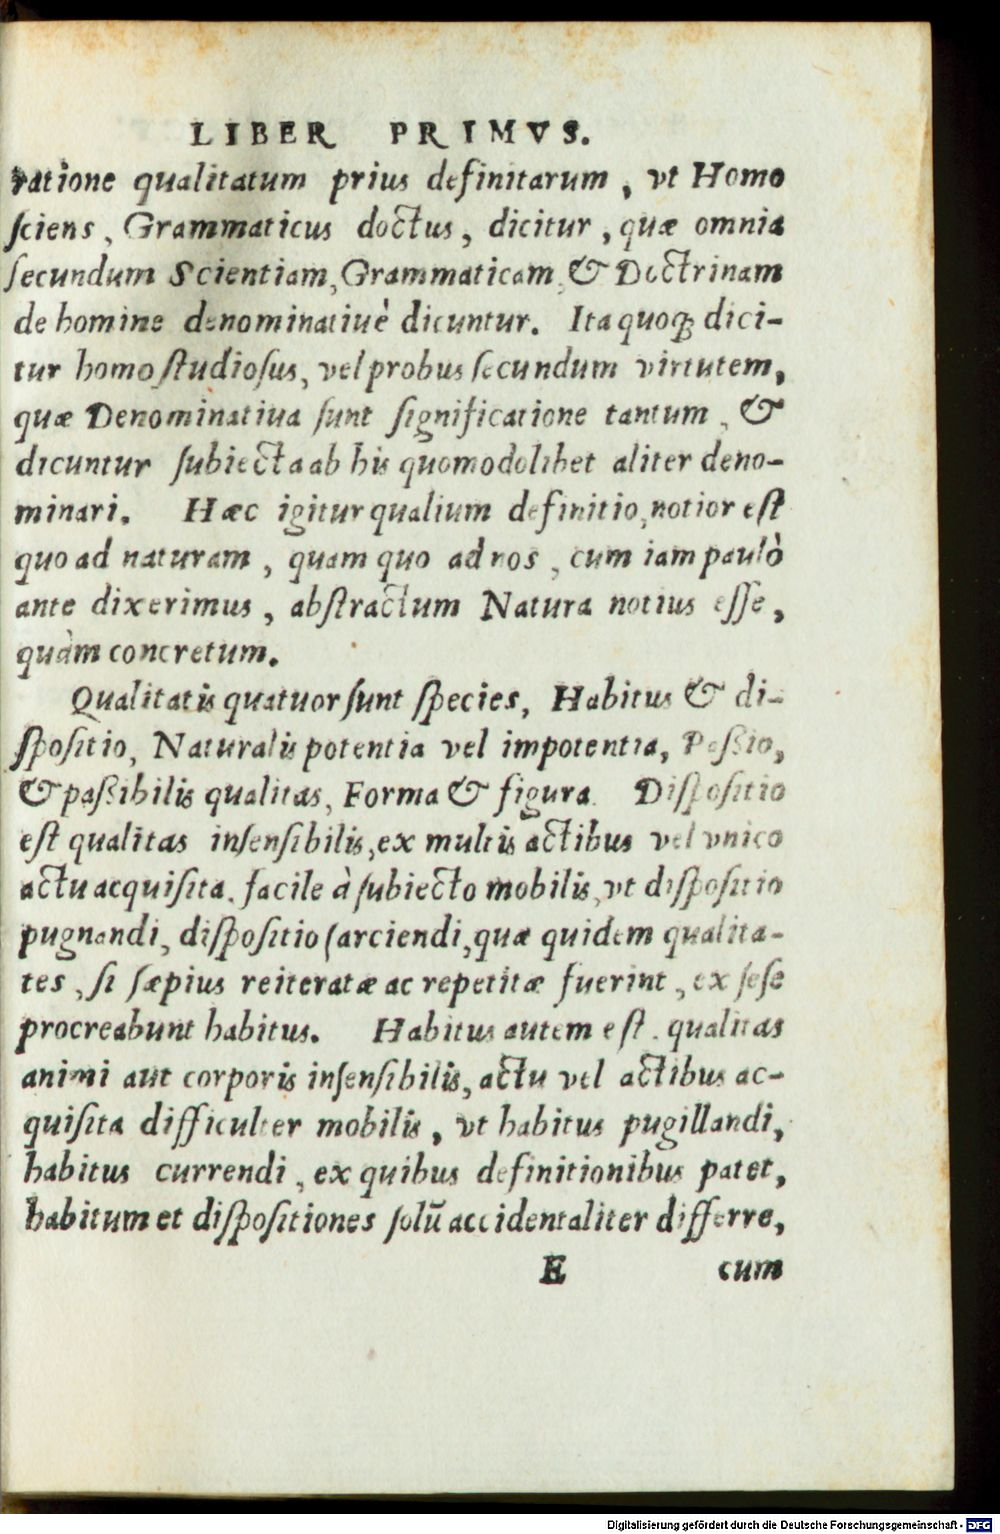 LIBER PRIMVS.
ratione qualitatum prius definitarum, vt Homo
ſciens, Grammaticus doctus, dicitur, quæ omnia
ſecundum Scientiam, Grammaticam, & Doctrinam
de homine denominatiuè dicuntur. Ita quoq̃ dici-
tur homo ſtudioſus, vel probus ſecundum virtutem,
quæ Denominatiua ſunt ſignificatione tantum, &
dicuntur ſubiecta ab his quomodolibet aliter deno-
minari. Hæc igitur qualium definitio, notior eſt
quo ad naturam, quam quo ad nos, cum iam paulò
ante dixerimus, abſtractum Natura notius eſſe,
quàm concretum.
Qualitatis quatuor ſunt ſpecies, Habitus & di-
ſpoſitio, Naturalis potentia vel impotentia, Paßio,
& paßibilis qualitas, Forma & figura. Diſpoſitio
eſt qualitas inſenſibilis, ex multis actibus vel vnico
actu acquiſita, facile à ſubiecto mobilis, vt diſpoſitio
pugnandi, diſpoſitio ſarciendi, quæ quidem qualita-
tes, ſi ſæpius reiteratæ ac repetitæ fuerint, ex ſeſe
procreabunt habitus. Habitus autem eſt. qualitas
animi aut corporis inſenſibilis, actu vel actibus ac-
quiſita difficulter mobilis, vt habitus pugillandi,
habitus currendi, ex quibus definitionibus patet,
habitum et diſpoſitiones ſolũ accidentaliter differre,
E cum
Digitalisierung gefördert durch die Deutsche Forschungsgemeinschaft - DFG